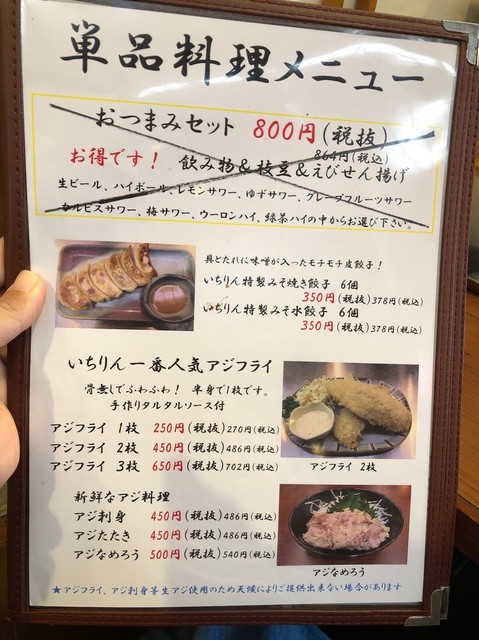 単品料理メニュー
おつまみセット 800円(税抜)
864円(税込)
お得です! 飲み物&枝豆&えびせん揚げ
生ビール、ハイボール、レモンサワー、ゆずサワー、グレープフルーツサワー
カルピスサワー、梅サワー、ウーロンハイ、緑茶ハイの中からお選び下さい。
具とたれに味噌が入ったモチモチ皮餃子!
いちりん特製みそ焼き餃子 6個
350円(税抜)378円(税込)
いちりん特製みそ水餃子 6個
350円(税抜)378円(税込)
いちりん一番人気アジフライ
骨無しでふわふわ! 半身で1枚です。
手作りタルタルソース付
アジフライ 1枚 250円(税抜)270円(税込)
アジフライ 2枚 450円(税抜)486円(税込)
アジフライ 3枚 650円(税抜)702円(税込)
アジフライ 2枚
新鮮なアジ料理
アジ刺身 450円(税抜)486円(税込)
アジたたき 450円(税抜)486円(税込)
アジなめろう 500円(税抜)540円(税込)
アジなめろう
★アジフライ、アジ刺身等生アジ使用のため天候によりご提供出来ない場合があります